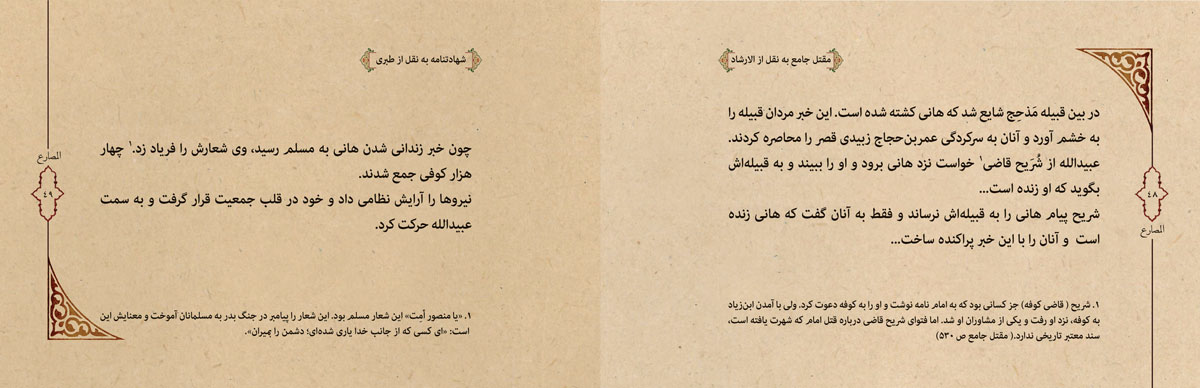 مقتل جامع به نقل از الارشاد
در بین قبیله مَذحِج شایع شد که هانی کشته شده است. این خبر مردان قبیله را
به خشم آورد و آنان به سرکردگی عمربن‌حجاج زبیدی قصر را محاصره کردند.
عبیدالله از شُرَیح قاضی۱ خواست نزد هانی برود و او را ببیند و به قبیله‌اش
بگوید که او زنده است...
شریح پیام هانی را به قبیله‌اش نرساند و فقط به آنان گفت که هانی زنده
است و آنان را با این خبر پراکنده ساخت...
۱. شریح ( قاضی کوفه) جز کسانی بود که به امام نامه نوشت و او را به کوفه دعوت کرد. ولی با آمدن ابن‌زیاد
به کوفه، نزد او رفت و یکی از مشاوران او شد. اما فتوای شریح قاضی درباره قتل امام که شهرت یافته است،
سند معتبر تاریخی ندارد.( مقتل جامع ص ۵۳۰)
۴۸
المصارع
شهادتنامه به نقل از طبری
چون خبر زندانی شدن هانی به مسلم رسید، وی شعارش را فریاد زد.۱ چهار
هزار کوفی جمع شدند.
نیروها را آرایش نظامی داد و خود در قلب جمعیت قرار گرفت و به سمت
عبیدالله حرکت کرد.
۱. «یا منصور اَمِت» این شعار مسلم بود. این شعار را پیامبر در جنگ بدر به مسلمانان آموخت و معنایش این
است: «ای کسی که از جانب خدا یاری شده‌ای؛ دشمن را بمیران».
المصارع
۴۹